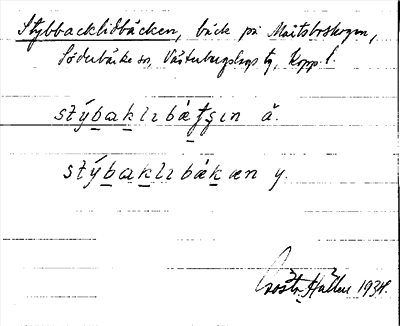 Stybbacklidbäcken, bäck på Maitsbroskogen,
Söderbärke sn, Västerbergslags tg, Kopp. l.
stýbaklibätsin ä.
stýbaklibákæn y.
Gösta Hallen 1934.